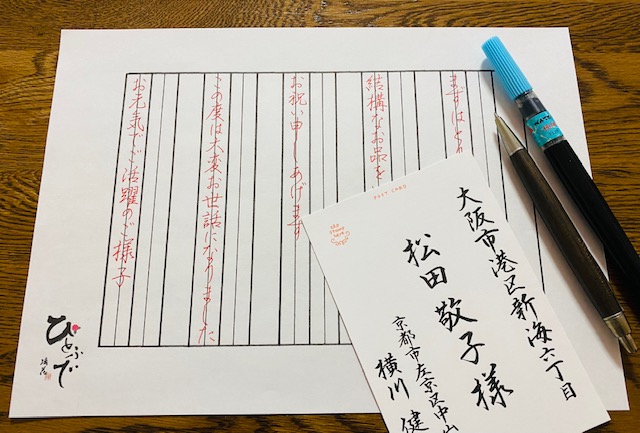 まずはとり
結構なお品を
お祝い申しあげます
この度は大変お世話になりました
お元気でご活躍のご様子
ひとふで
POST CARD
大阪市港区新海六丁目
松田敬子様
京都市左京区中山
横川健